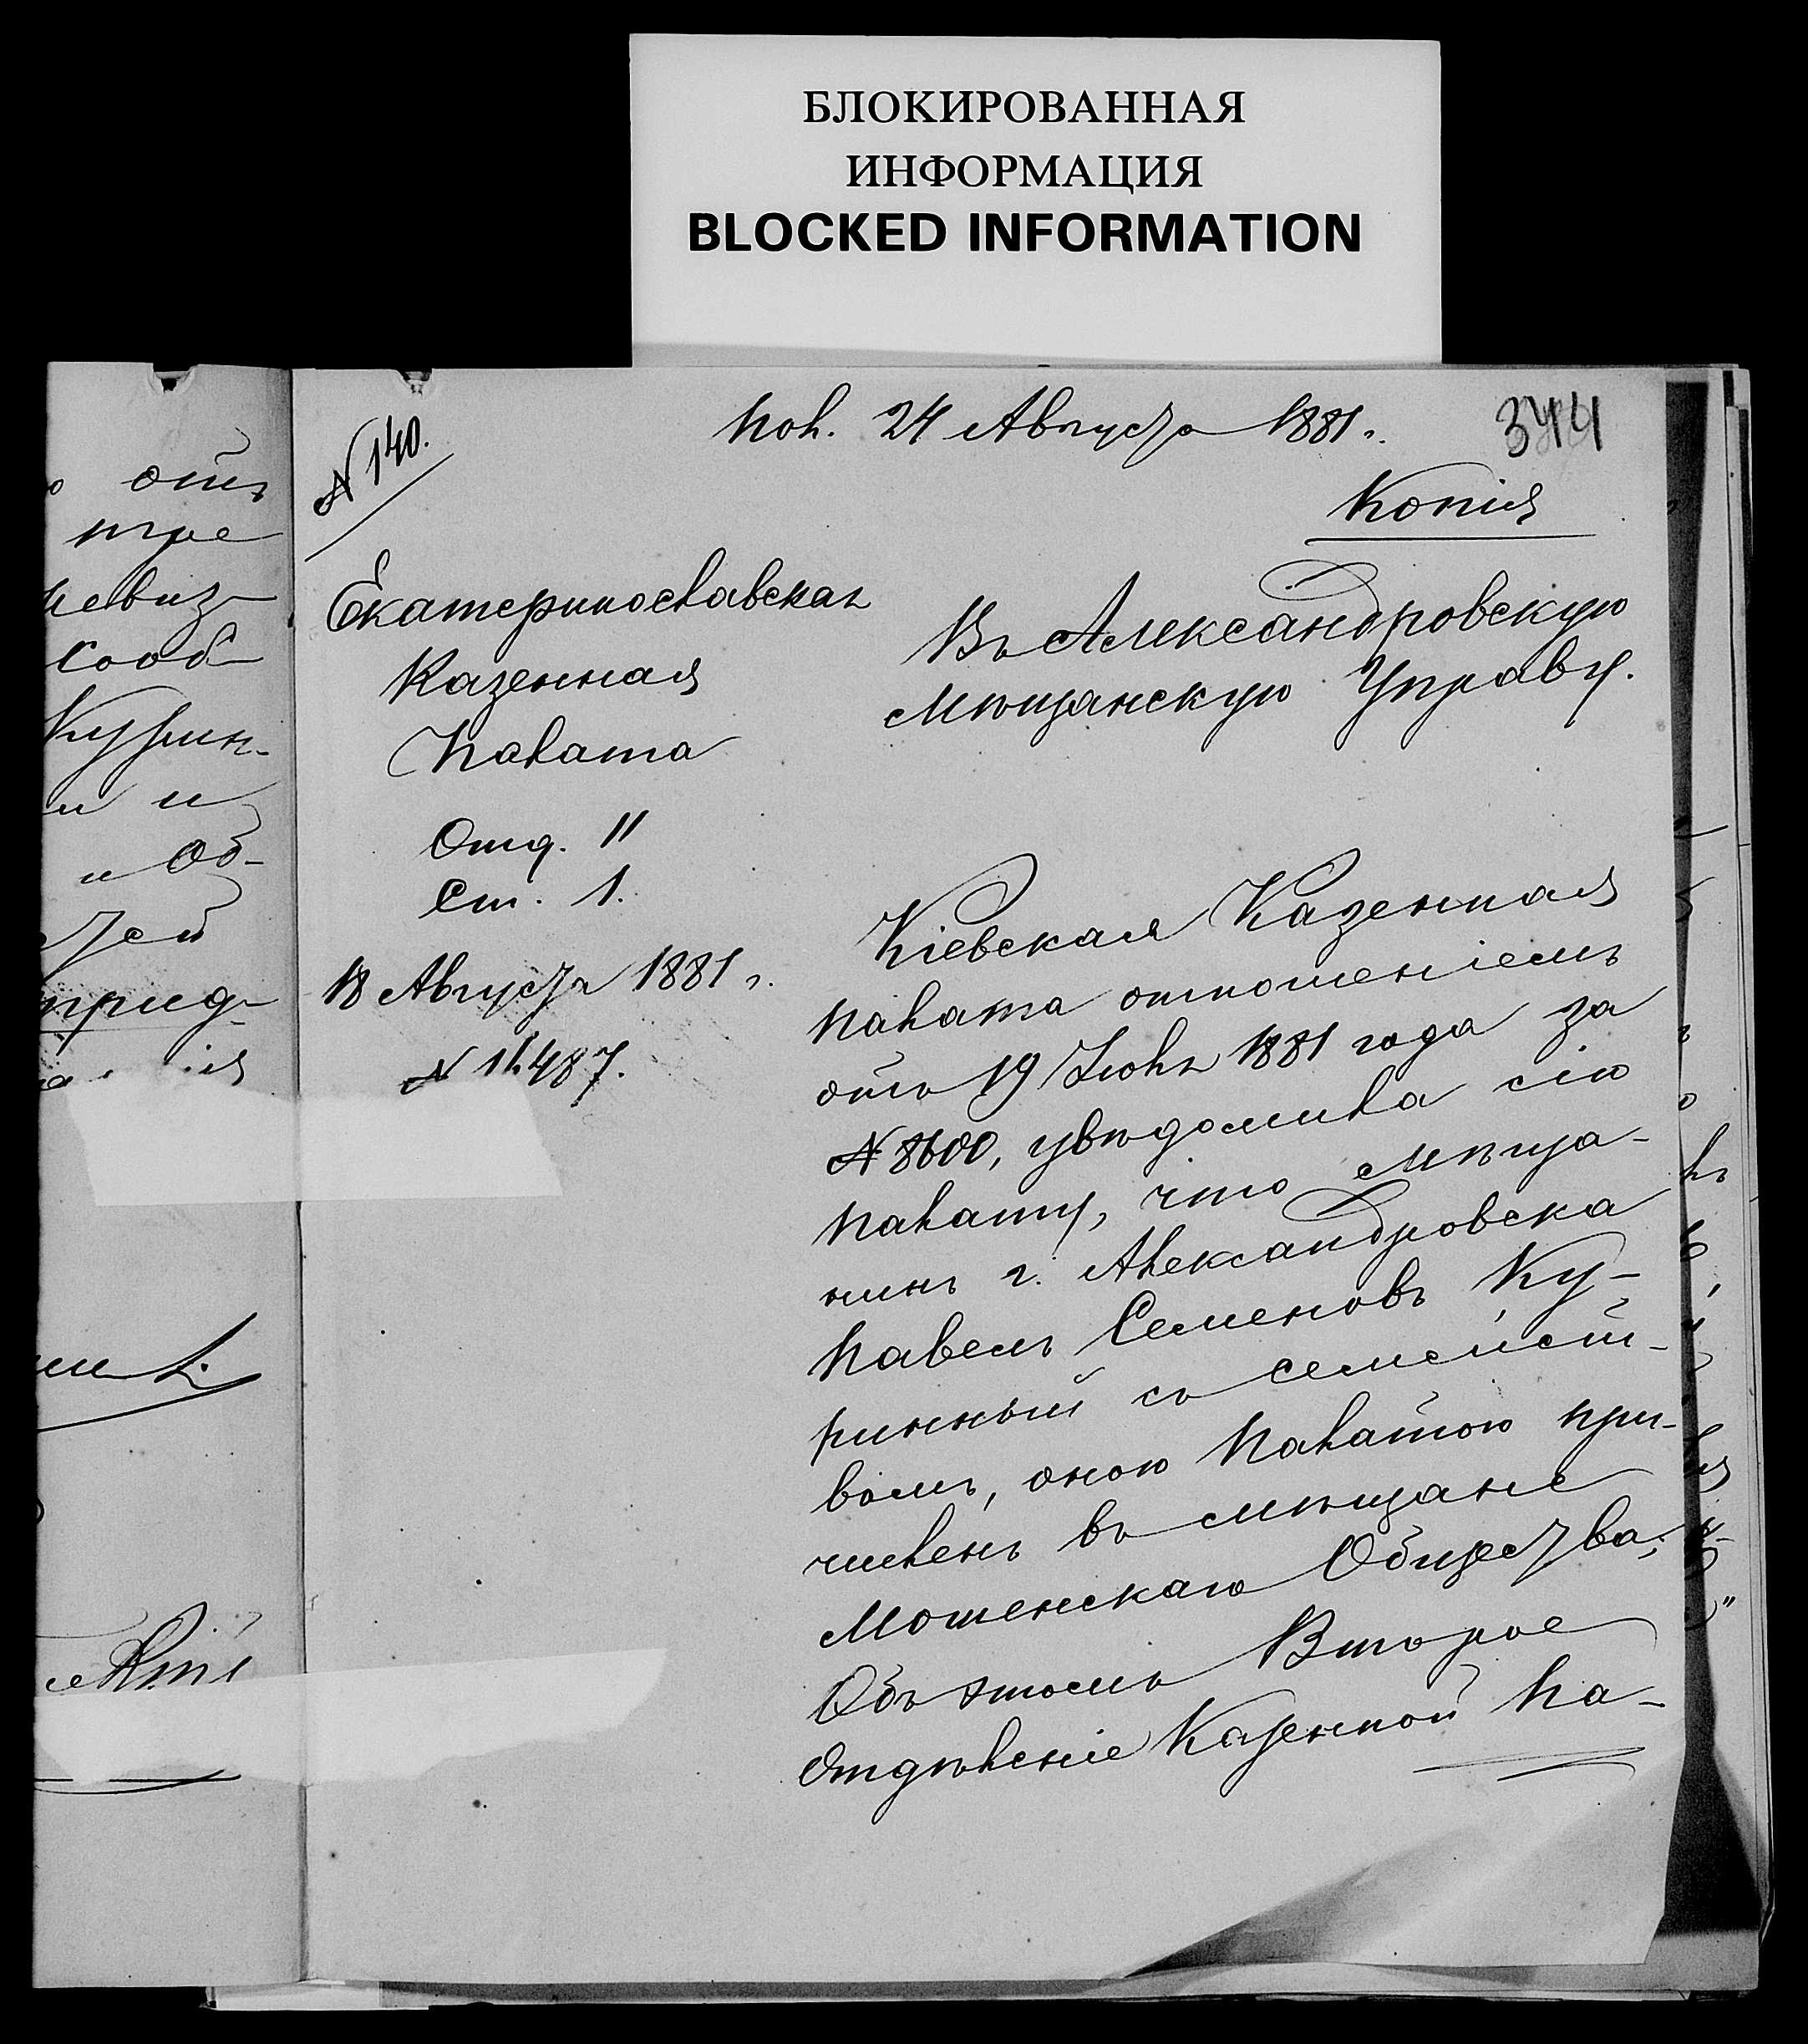 БЛОКИРОВАННАЯ
ИНФОРМАЦИЯ
BLOCKED INFORMATION
Пол. 24 Августа 1881 г.
344
N 140.
Копія
Екатеринославская
Казенная
Палата
Отд. II
Ст. 1.
18 Августа 1881 г.
N 11487.
Въ Александровскую
Мѣщанскую Управу.
Кіевская Казенная
Палата отношеніемъ
отъ 19 Іюля 1881 года за
N 8600, увѣдомила сію
Палату, что мѣща-
нинъ г. Александровска
Павелъ Семеновъ Ку-
ринный съ семейст-
вомъ, оною Палатою при-
численъ въ мѣщане
Мошенскаго Общества;
Объ этомъ Второе
Отдѣленіе Казенной Па-
отъ
ревиз
сооб
Курин-
и
и Об-
прид-